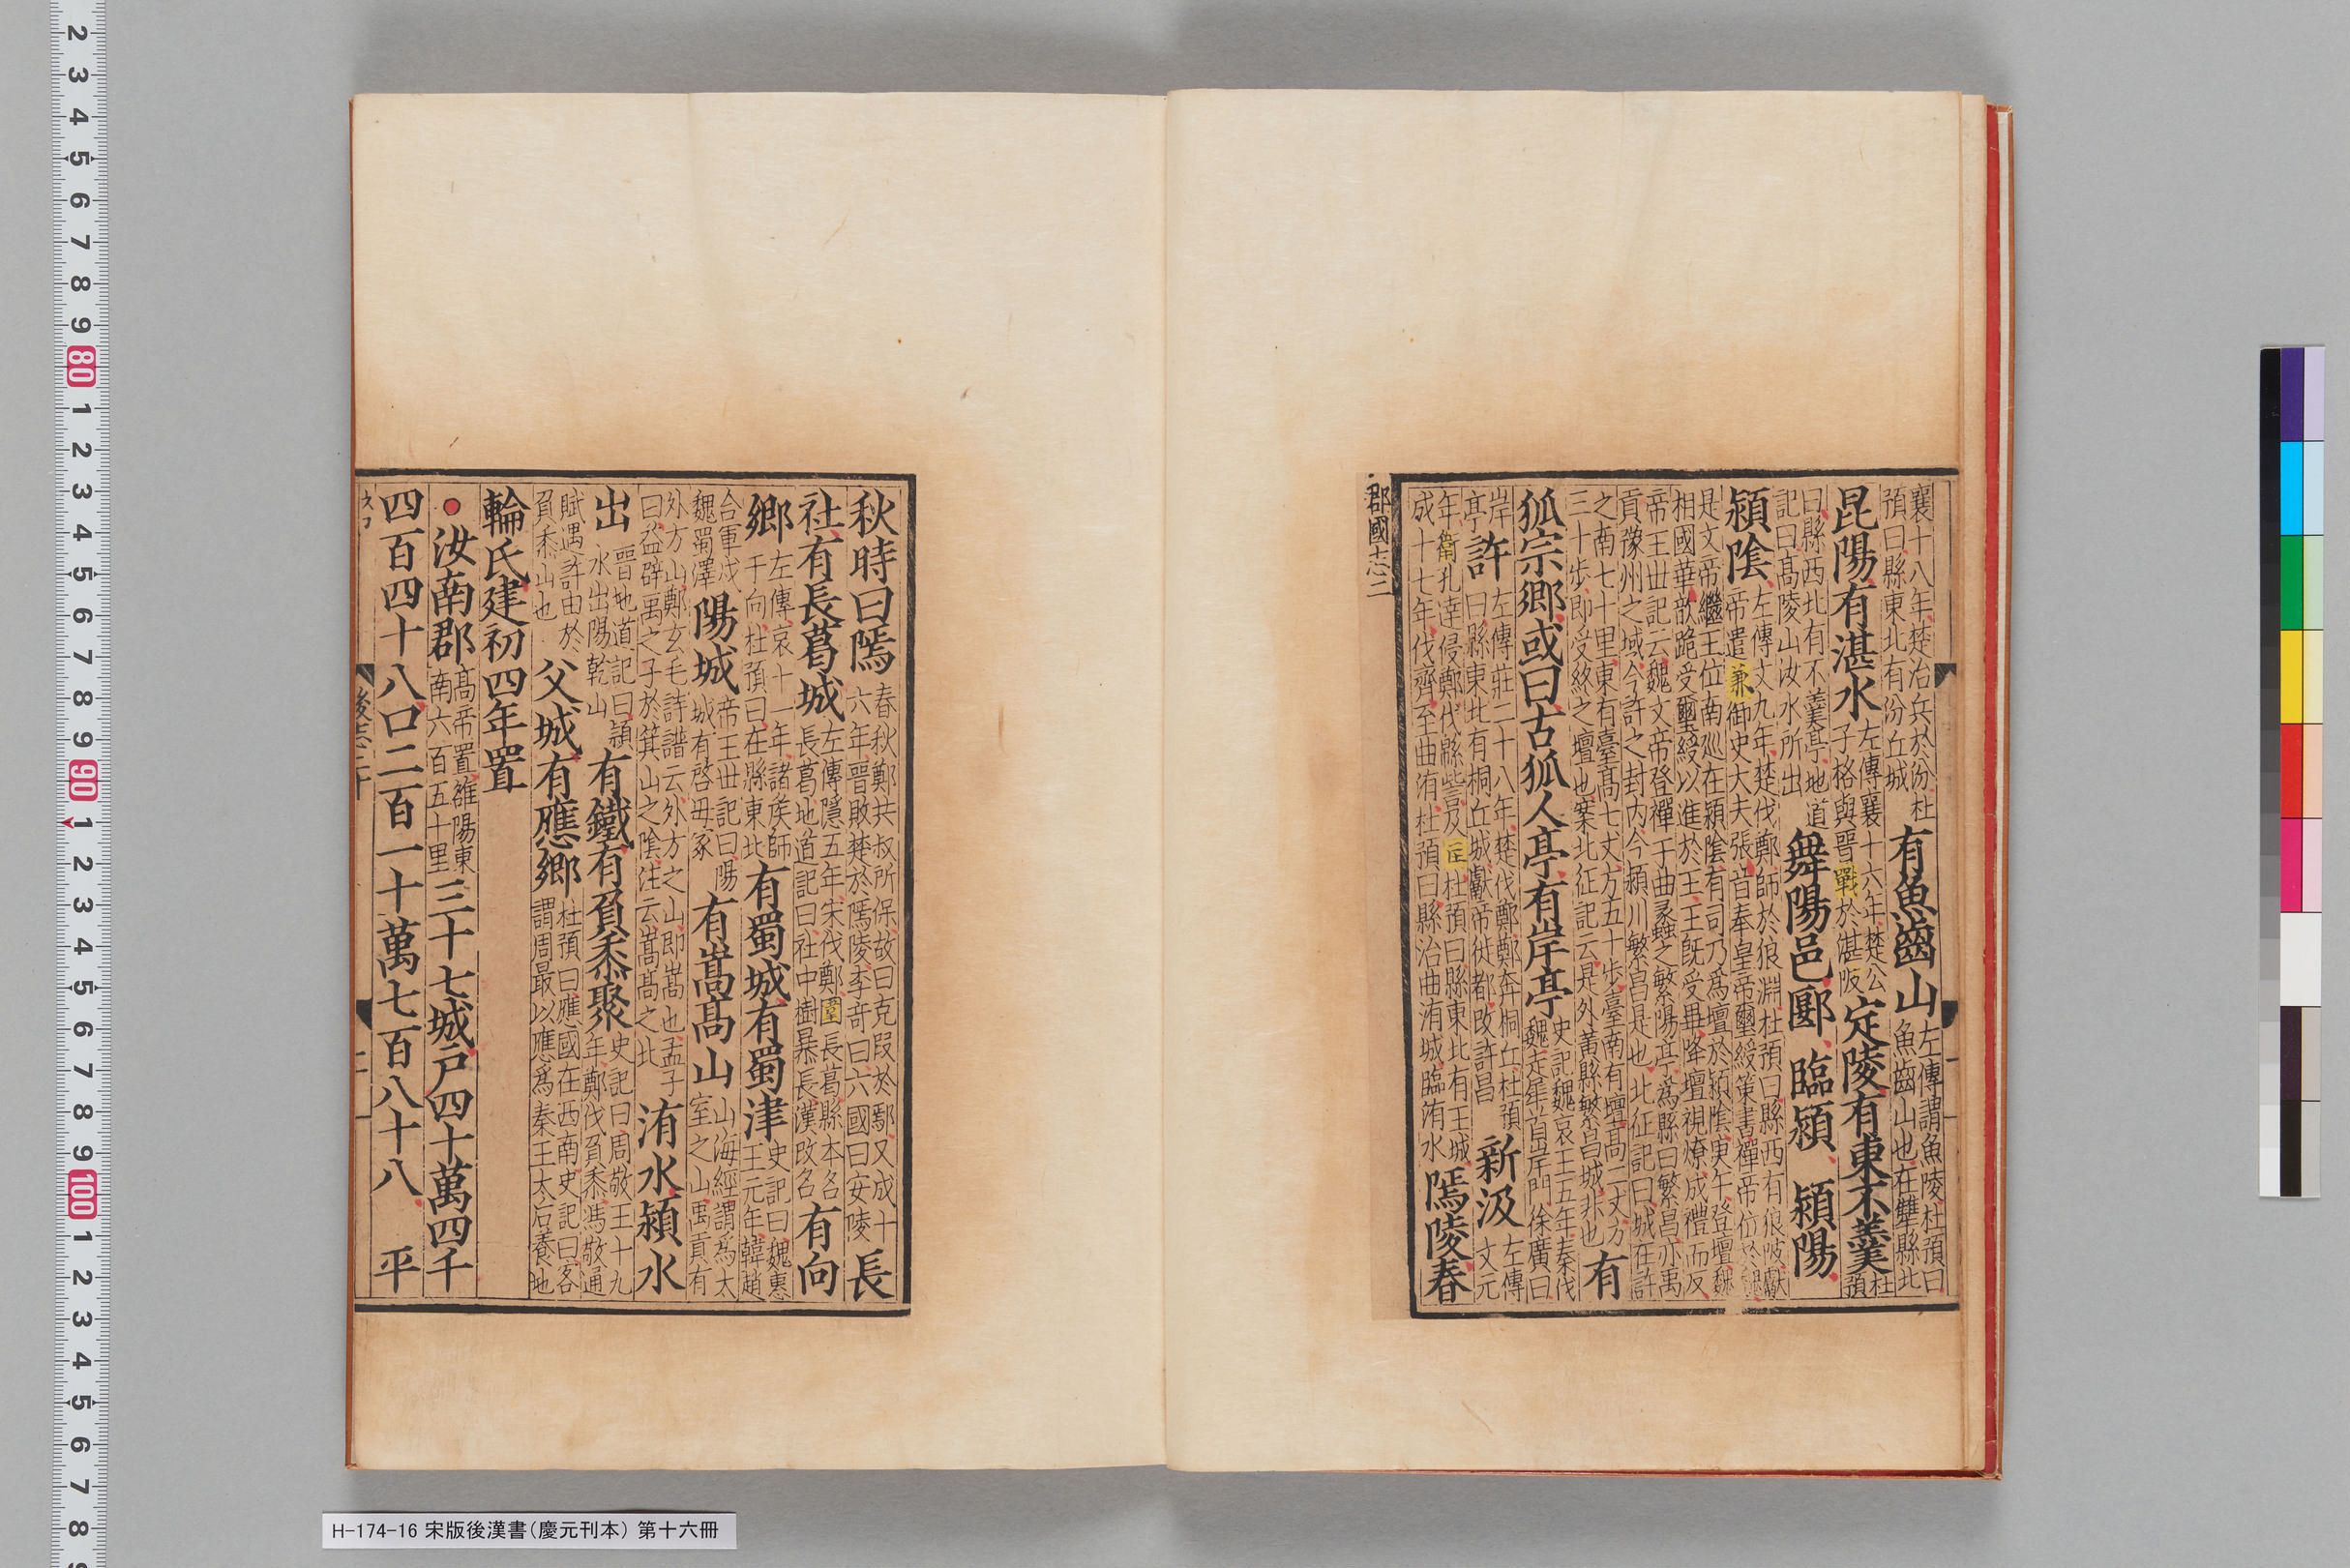 襄十八年楚治兵於汾杜預曰縣東北有汾丘城有魚齒山左傳謂魚陵杜預曰魚齒山也在犨縣北
昆陽有湛水左傳襄十六年楚公子格與晉戰於湛阪定陵有東不羹杜預
曰縣西北有不羹亭地道記曰高陵山汝水所出舞陽邑郾 臨潁 潁陽
潁陰左傳文九年楚伐鄭師於狼淵杜預曰縣西有狼陂獻帝遣兼御史大夫張音奉皇帝璽綬策書禪帝位於魏
是文帝繼王位南巡在潁陰有司乃為壇於潁陰庚午登壇魏相國華歆跪受璽紱以進於王王既受畢降壇視燎成禮而反
帝王世記云魏文帝登禪于曲蠡之繁陽亭為縣曰繁昌亦禹貢豫州之域今許之封內今潁川繁昌是也北征記曰城在許
之南七十里東有臺高七丈方五十步臺南有壇高二丈方三十步即受終之壇也案北征記云是外黃縣繁昌城非也有
狐宗鄉或曰古狐人亭有岸亭史記魏哀王五年秦伐魏走犀首岸門徐廣曰
岸亭許左傳莊二十八年楚伐鄭鄭奔桐丘杜預曰縣東北有桐丘城獻帝徙都改許昌新汲左傳文元
年衛孔達侵鄭伐縣訾及匡杜預曰縣東北有王城成十七年伐齊至曲洧杜預曰縣治曲洧城臨洧水隱陵春
郡國志二
秋時曰隱春秋鄭共叔所保故曰克段於鄢又成十六年晉敗楚於隱陵李奇曰六國曰安陵長
社有長葛城左傳隱五年宋伐鄭圍長葛縣本名長葛地道記曰社中樹暴長漢改名有向
鄉左傳哀十一年諸侯師于向杜預曰在縣東北有蜀城有蜀津史記曰魏惠王元年韓趙
合軍伐魏蜀澤陽城帝王世記曰陽城有啓母冢有嵩高山山海經謂為太室之山禹貢有
外方山鄭玄毛詩譜云外方之山即嵩也孟子曰益辟禹之子於箕山之陰注云嵩高之北洧水潁水
出晉地道記曰潁水出陽乾山有鐵有負黍聚史記曰周敬王十九年鄭伐負黍馮敬通
賦遇許由於負黍山也父城有應鄉杜預曰應國在西南史記曰客謂周最以應為秦王太后養地
輪氏建初四年置
汝南郡高帝置雒陽東南六百五十里三十七城戶四十萬四千
四百四十八口二百一十萬七百八十八 平
H-174-16 宋版後漢書(慶元刊本) 第十六冊